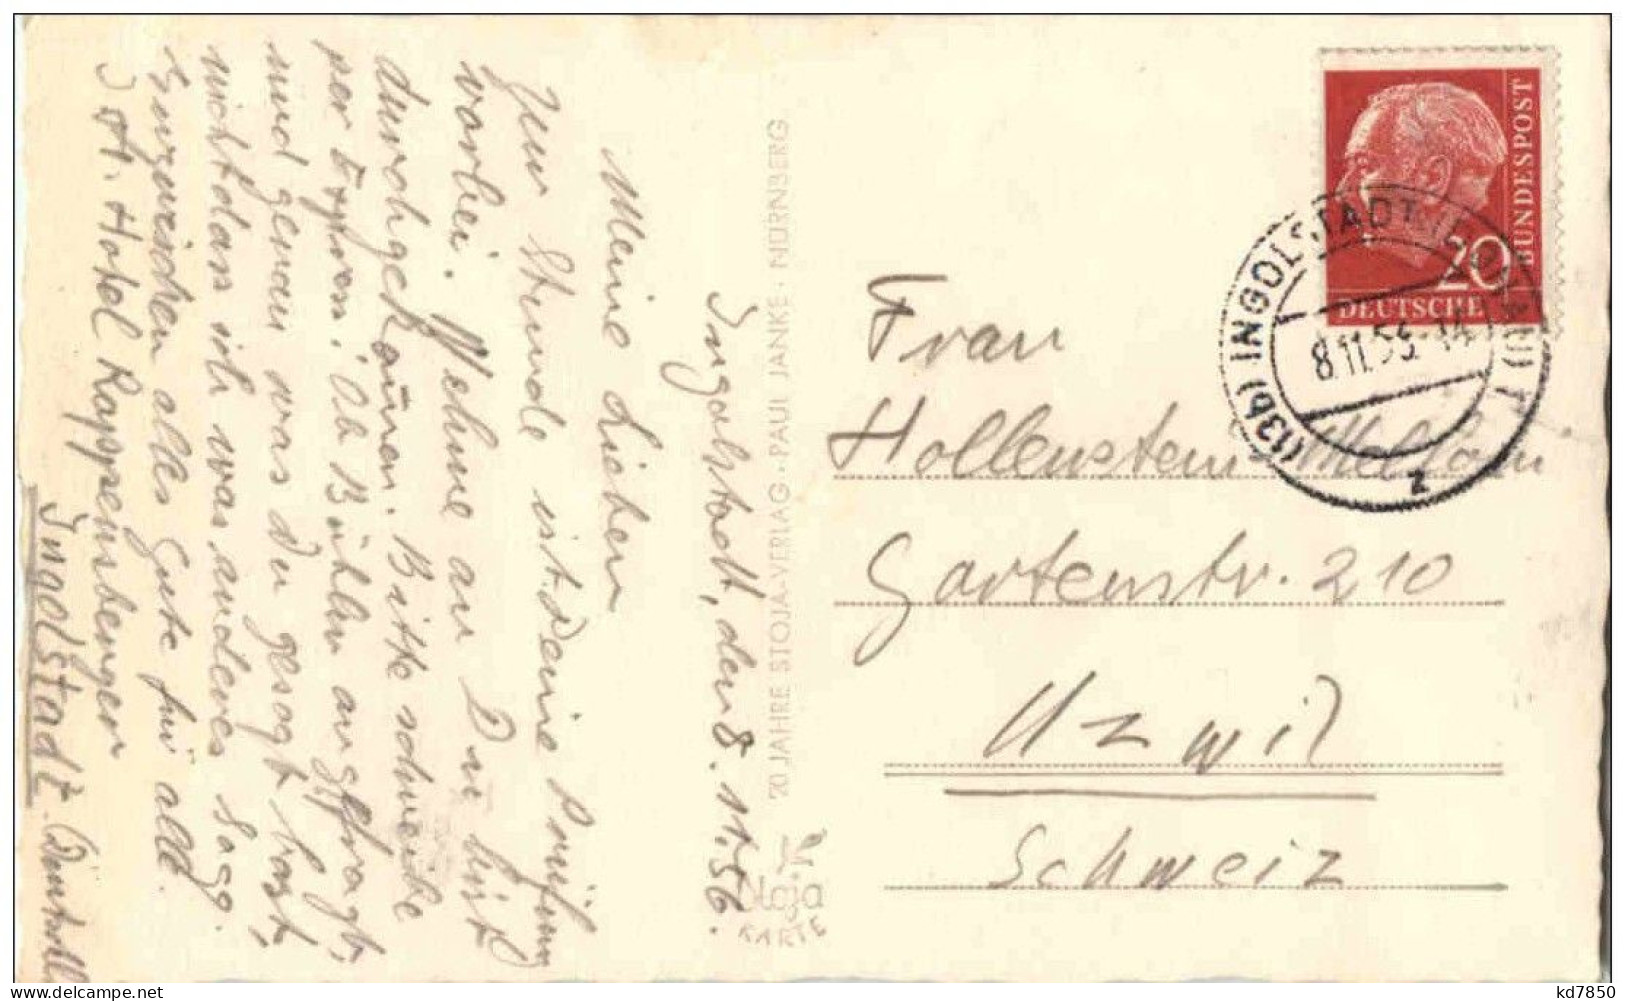 Ingolstadt, den 8.11.56.
Meine Lieben
Zur Stunde ist Deine Prüfung
vorbei. Nehme an Du bist
durchgekom̄en. Bitte schreibe
per Express. Ob Bühler angefragt,
und genau was Du gesagt hast,
nicht dass ich was anderes sage.
Inzwischen alles Gute für alle.
Hotel Rappensberger
Ingolstadt.
20 JAHRE STOJA-VERLAG · PAUL JANKE · NÜRNBERG
Stoja
KARTE
BUNDESPOST
20
DEUTSCHE
(13b) INGOLSTADT
8.11.56.-14
z
Frau
Hollenstein
Gartenstr. 210
Uzwil
Schweiz
kd7850